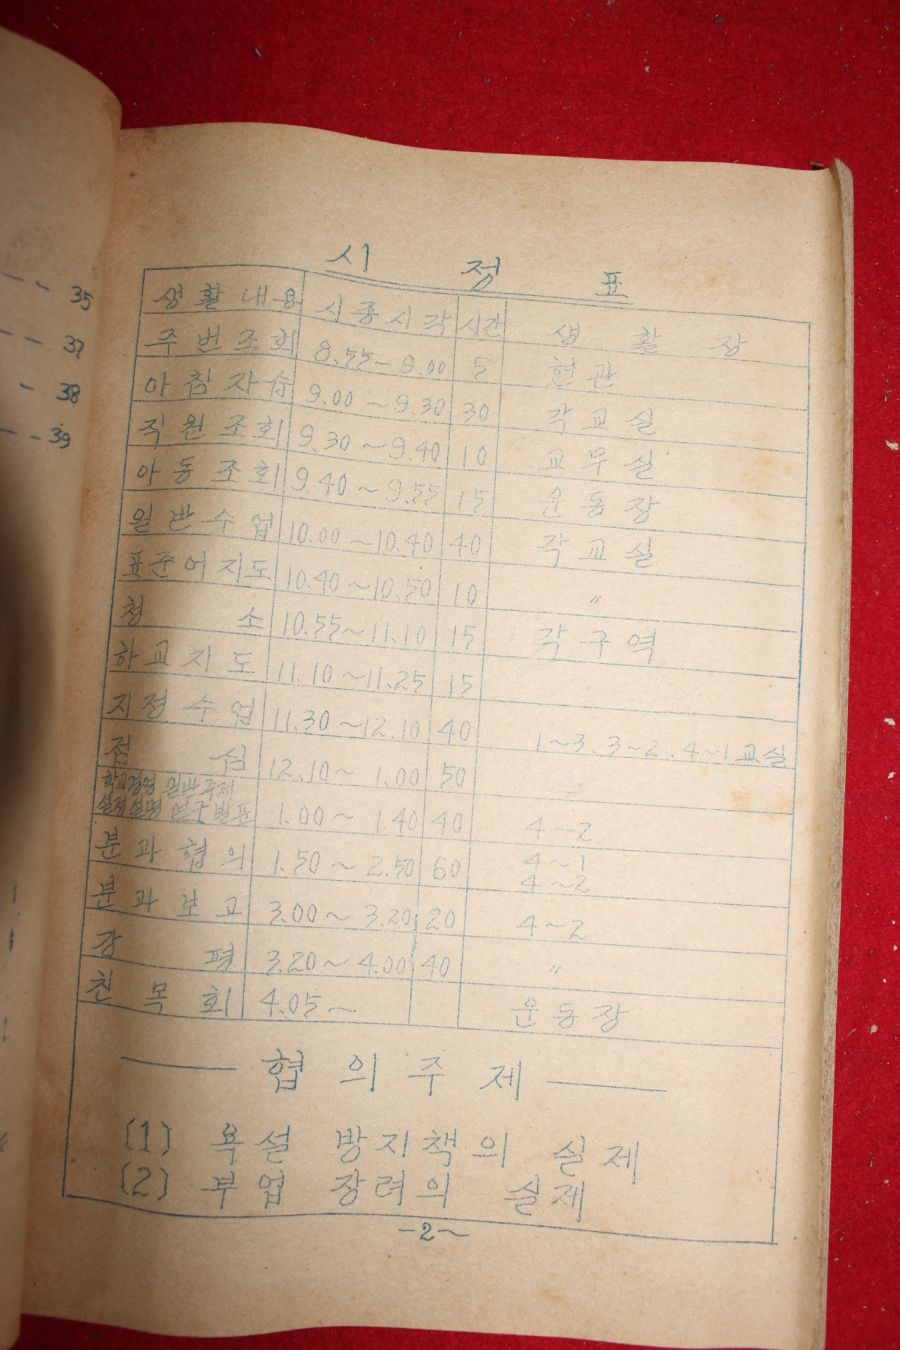 35
37
38
39
시 정 표
생활내용 시종시각 시간 생 활 장
주번조회 8.55-9.00 5 현관
아침자습 9.00~9.30 30 각교실
직원조회 9.30~9.40 10 교무실
아동조회 9.40~9.55 15 운동장
일반수업 10.00~10.40 40 각교실
표준어지도 10.40~10.50 10 〃
청 소 10.55~11.10 15 각구역
하교지도 11.10~11.25 15
지정수업 11.30~12.10 40 1~3. 3~2. 4~1교실
점 심 12.10~1.00 50
학교경영 일반과제
실정설명 연구발표 1.00~1.40 40 4-2
분과협의 1.50~2.50 60 4~1
4~2
분과보고 3.00~3.20 20 4~2
강 평 3.20~4.00 40 〃
친목회 4.05~ 운동장
협의주제
(1) 욕설 방지책의 실제
(2) 부업 장려의 실제
-2~